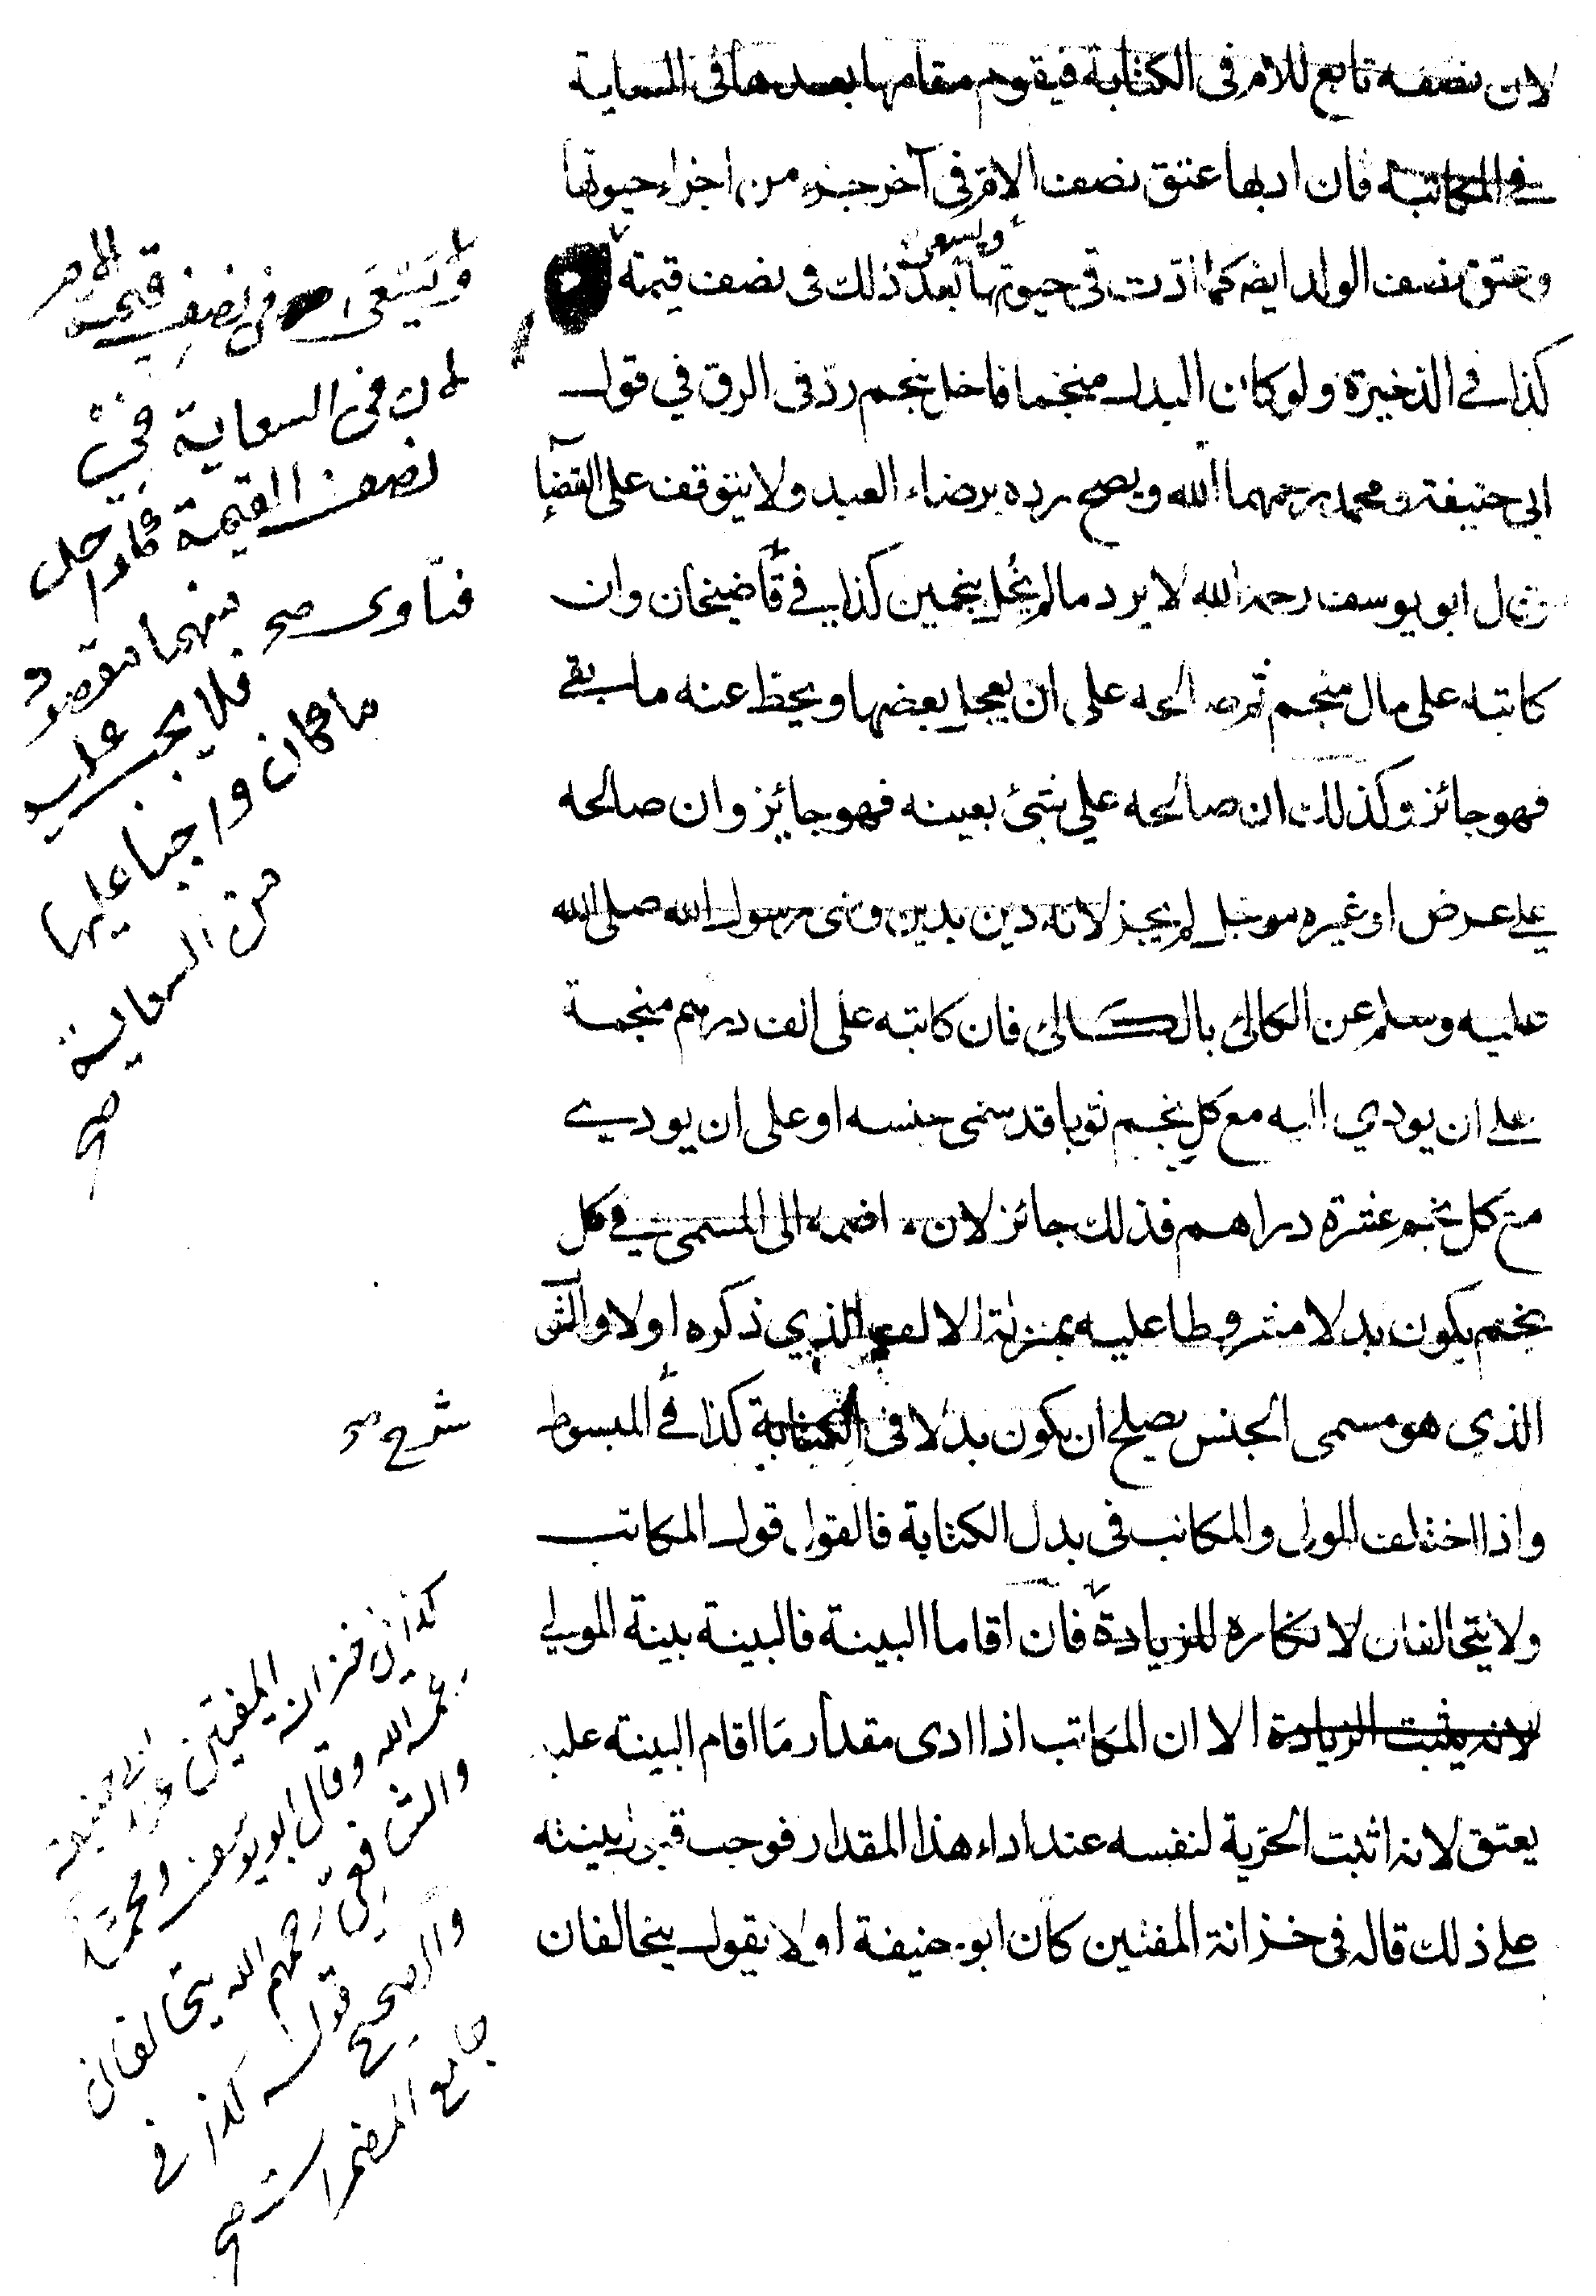 لان نصفه تابع للام فى الكتابة فيقوم مقامها بعدها فى السعاية
في المكاتبة فان ادبها عتق نصف الام فى آخر جزء من اجزاء حيوتها
ويسعى
وعتق نصف الولد ايضه كما ادت فى حيوتها بعد ذلك فى نصف قيمته
كذا في الذخيرة ولو كان البدل منجما فاخل بنجم رد فى الرق في قول
ابى حنيفة ومحمد رحمهما الله ويصح رده برضاء العبد ولا يتوقف على القضآء
وقال ابو يوسف رحمه الله لا يرد مالم يخل بنجمين كذا في قاضيخان وان
كاتبه على مال منجم ثم صالحه على ان يعجل بعضها ويحط عنه ما بقي
فهو جائز وكذلك ان صالحه علي شئ بعينه فهو جايز وان صالحه
علي عرض او غيره موجل لم يجز لانه دين بدين ونهى رسول الله صلى الله
عليه وسلم عن الكالئ بالكالئ فان كاتبه على الف درهم منجمة
على ان يودي اليه مع كل نجم ثوبا قد سمى جنسه او على ان يودي
مع كل نجم عشرة دراهم فذلك جائز لان ما ضمه الى المسمى في كل
نجم يكون بدلا مشروطا عليه بمنزلة الالف الذي ذكره اولا والثوب
الذي هو مسمى الجنس يصلح ان يكون بدلا فى الكتابة كذا في المبسوط
واذا اختلف المولى والمكاتب فى بدل الكتابة فالقول قول المكاتب
ولا يتحالفان لانكاره للزيادة فان اقاما البينة فالبينة بينة المولي
لانه يثبت الزيادة الا ان المكاتب اذا ادى مقدار ما اقام البينة عليه
يعتق لانه اثبت الحرية لنفسه عند اداء هذا المقدار فوجب قبول بينته
على ذلك قاله فى خزانة المفتين كان ابو حنيفة اولا يقول يتحالفان
ويسعى فى نصف قيمة الام
لان فى السعاية في
نصف القيمة كل واحد
منهما مقصود
فلا يجب عليه
ما كان واجبا عليها
من السعاية
صح
فتاوى صح
شرح صح
كذا فى خزانة المفتين عند ابى حنيفة
رحمه الله وقال ابو يوسف ومحمد
والشافعي رحمهم الله يتحالفان
والصحيح قوله كذا في
جامع المضمرات صح